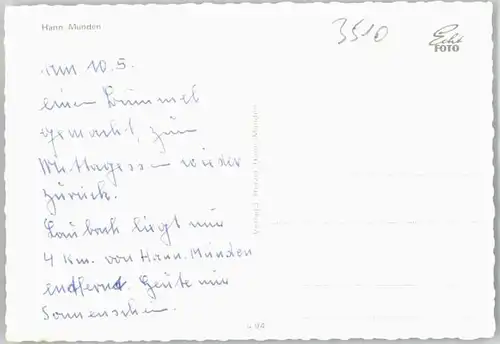 Hann. Münden
3510
Echt
FOTO
Am 10.5.
einen Bummel
gemacht, zum
Mittagessen wieder
zurück.
Laubach liegt nur
4 Km. von Hann. Münden
entfernt. Heute nur
Sonnenschein.
Hann. Münden